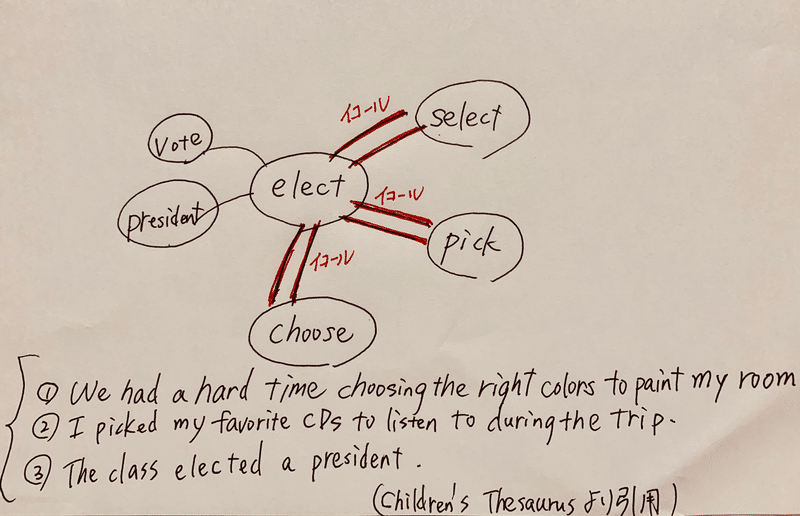 イコール
select
vote
elect
president
イコール
pick
イコール
choose
① We had a hard time choosing the right colors to paint my room
② I picked my favorite CDs to listen to during the trip.
③ The class elected a president.
(Children's Thesaurus より引用)